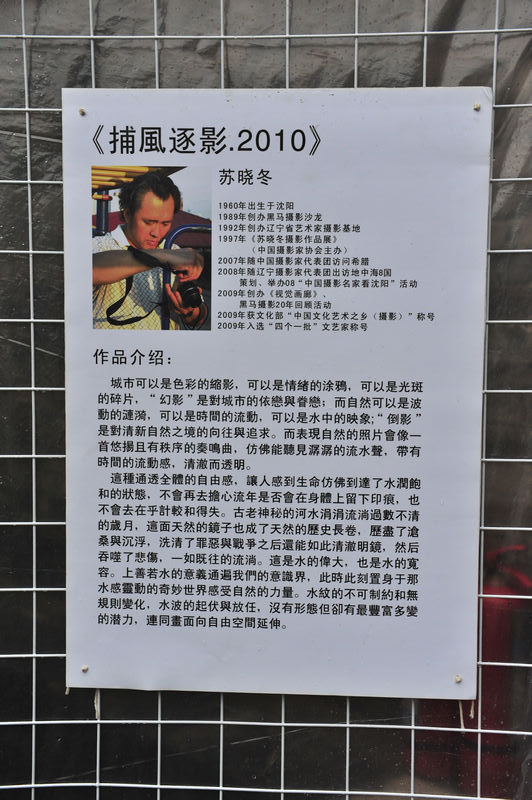 《捕風逐影.2010》
苏晓冬
1960年出生于沈阳
1989年创办黑马摄影沙龙
1992年创办辽宁省艺术家摄影基地
1997年《苏晓冬摄影作品展》
（中国摄影家协会主办）
2007年随中国摄影家代表团访问希腊
2008年随辽宁摄影家代表团出访地中海8国
策划、举办08“中国摄影名家看沈阳”活动
2009年创办《视觉画廊》、
黑马摄影20年回顾活动
2009年获文化部“中国文化艺术之乡（摄影）”称号
2009年入选“四个一批”文艺家称号
作品介绍：
城市可以是色彩的縮影，可以是情緒的涂鴉，可以是光斑
的碎片，“幻影”是對城市的依戀與眷戀；而自然可以是波
動的漣漪，可以是時間的流動，可以是水中的映象；“倒影”
是對清新自然之境的向往與追求。而表現自然的照片會像一
首悠揚且有秩序的奏鳴曲，仿佛能聽見潺潺的流水聲，帶有
時間的流動感，清澈而透明。
這種通透全體的自由感，讓人感到生命仿佛到達了水潤飽
和的狀態，不會再去擔心流年是否會在身體上留下印痕，也
不會去在乎計較和得失。古老神秘的河水涓涓流淌過數不清
的歲月，這面天然的鏡子也成了天然的歷史長卷，歷盡了滄
桑與沉浮，洗清了罪惡與戰爭之后還能如此清澈明鏡，然后
吞噬了悲傷，一如既往的流淌。這是水的偉大，也是水的寬
容。上善若水的意義通遍我們的意識界，此時此刻置身于那
水感靈動的奇妙世界感受自然的力量。水紋的不可制約和無
規則變化，水波的起伏與放任，沒有形態但卻有最豐富多變
的潜力，連同畫面向自由空間延伸。